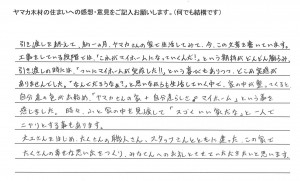 ヤマカ木材の住まいへの感想・意見をご記入お願いします。(何でも結構です)
引き渡しを終えて、約一ヵ月、ヤマカさんの家で生活してみて、今、この文書を書いています。
工事をしている段階では「これがマイホームになっていくんだ!」という期待がどんどん膨らみ、
引き渡しの時には「ついにマイホームが完成した!!」という喜びもありつつ、どこか実感が
ありませんでした。「なんでだろうなぁ?」と思いながらも生活していく中で、家の中が整ってくると
自分達の色が出始め「ヤマカさんの家+自分達らしさ=マイホーム」という事を
感じました。時々、ふと家の中を見渡して「スゴくいい家だな」と一人で
ニヤリとする事もあります。
大工さんをはじめ、たくさんの職人さん、スタッフさんとともに建った、この家で
たくさんの幸せな思い出をつくり、みなさんへのお礼とさせていただきたいと思います。